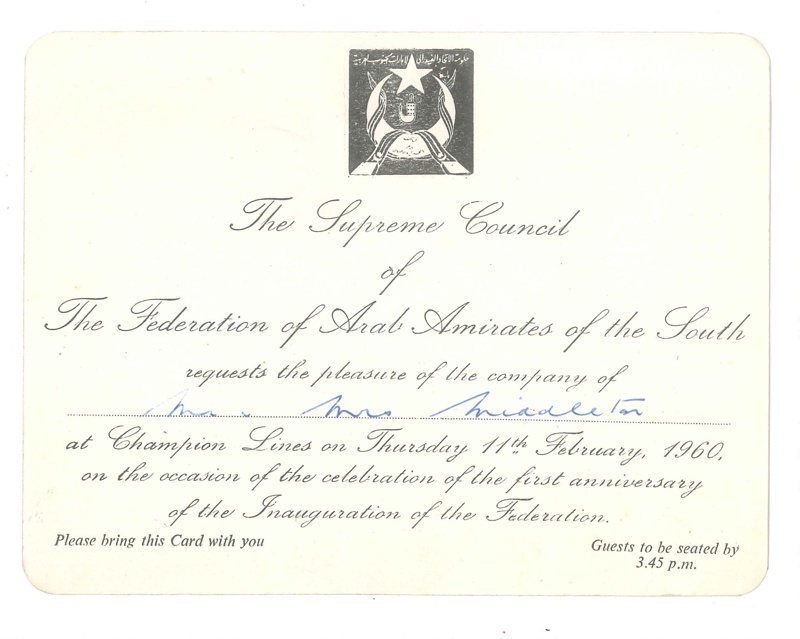 The Supreme Council
of
The Federation of Arab Amirates of the South
requests the pleasure of the company of
Mr. Mrs Middleton
at Champion Lines on Thursday 11th February, 1960,
on the occasion of the celebration of the first anniversary
of the Inauguration of the Federation.
Please bring this Card with you
Guests to be seated by
3.45 p.m.